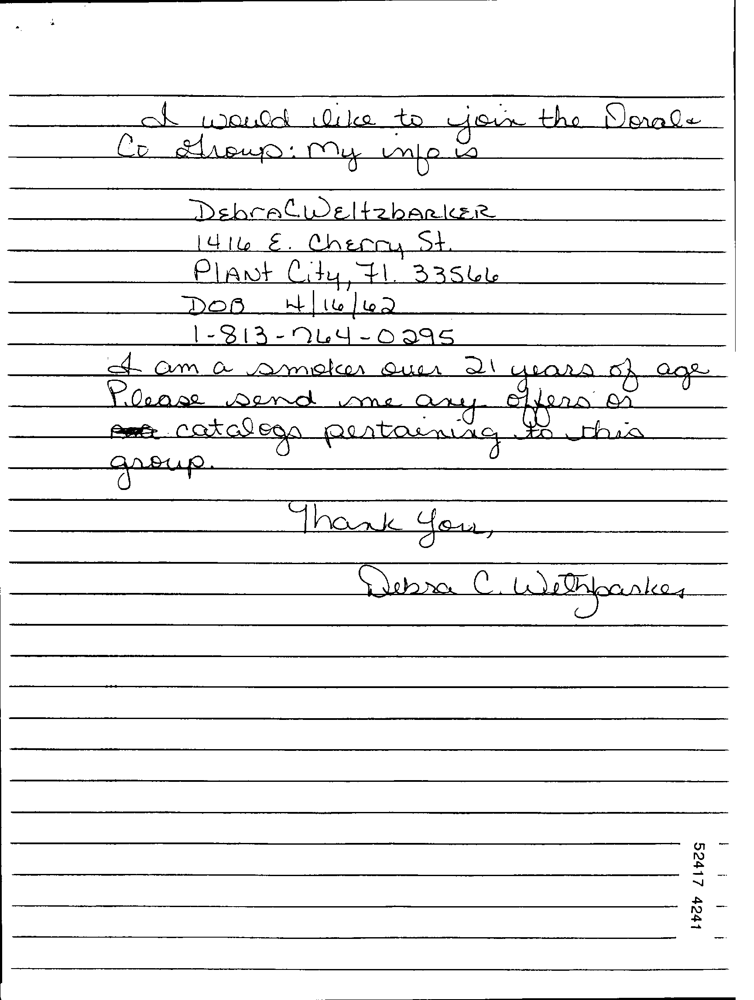 I would like to join the Doral &
Co Group: My info is
Debra C Weltzbarker
1416 E. Cherry St.
Plant City, Fl. 33566
DOB 4/16/62
1-813-764-0295
I am a smoker over 21 years of age
Please send me any offers or
catalogs pertaining to this
group.
Thank You,
Debra C. Weltzbarker
52417 4241